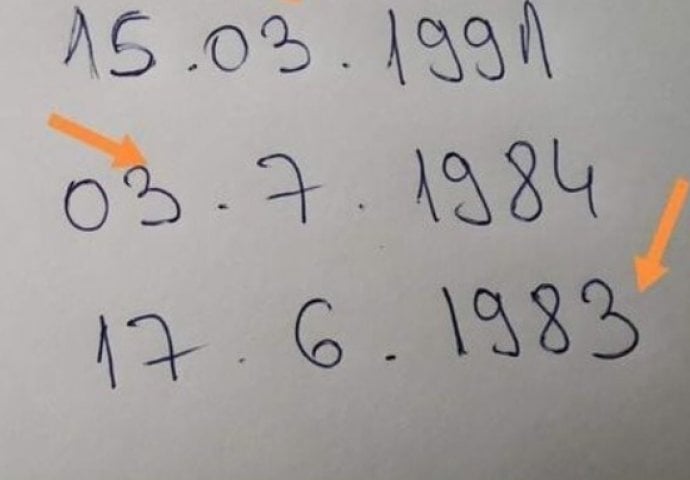 15.03.1991
03.7.1984
17.6.1983